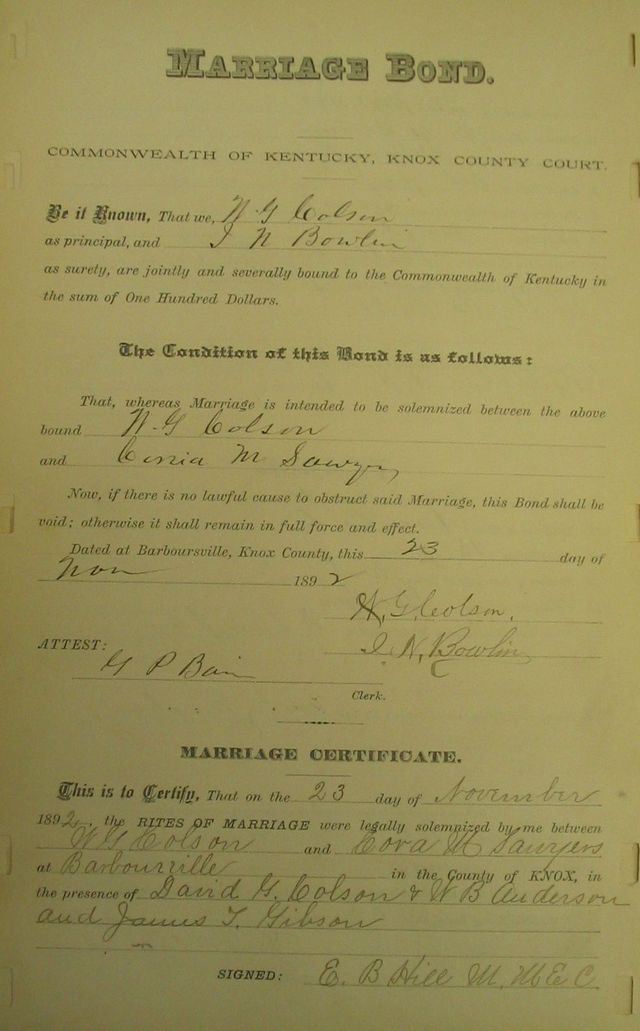 MARRIAGE BOND.
COMMONWEALTH OF KENTUCKY, KNOX COUNTY COURT.
Be it Known, That we, W. G Colson
as principal, and I N Bowlin
as surety, are jointly and severally bound to the Commonwealth of Kentucky in
the sum of One Hundred Dollars.
The Condition of this Bond is as follows:
That, whereas Marriage is intended to be solemnized between the above
bound W. G Colson
and M Sawyer
Now, if there is no lawful cause to obstruct said Marriage, this Bond shall be
void; otherwise it shall remain in full force and effect.
Dated at Barboursville, Knox County, this 23 day of
Nov 1892
W. G. Colson.
ATTEST: I. N. Bowlin
G P Bain
Clerk.
MARRIAGE CERTIFICATE.
This is to Certify, That on the 23 day of November
1892, the RITES OF MARRIAGE were legally solemnized by me between
W G Colson and Cora M Sawyers
at Barbourville in the County of KNOX, in
the presence of David G. Colson & W B Anderson
and James T. Gibson
SIGNED: E. B Hill M. M E C.